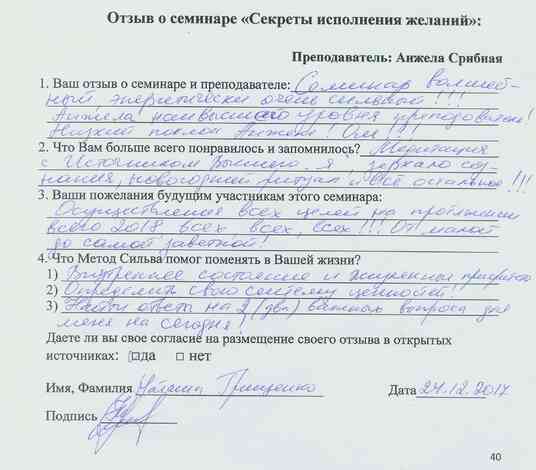 Отзыв о семинаре «Секреты исполнения желаний»:
Преподаватель: Анжела Срибная
1. Ваш отзыв о семинаре и преподавателе: Семинар волшеб-
ный, энергетически очень сильный!!!
Анжела наивысшего уровня преподаватель!
Низкий поклон Анжеле! Оля!!!
2. Что Вам больше всего понравилось и запомнилось? Медитация
с Источником Высшего я, зеркало соз-
нания, новогодний ритуал и всё остальное!!!
3. Ваши пожелания будущим участникам этого семинара:
Осуществления всех целей на протяжении
всего 2018, всех, всех, всех!!! От малой
до самой заветной!
4. Что Метод Сильва помог поменять в Вашей жизни?
1) Внутреннее состояние и жизненные приоритеты
2) Определить свою систему ценностей!
3) Найти ответы на 2 (два) важных вопроса для
меня на сегодня!
Даете ли вы свое согласие на размещение своего отзыва в открытых
источниках: □да □ нет
Имя, Фамилия Наталия Грищенко Дата 24.12.2017
Подпись
40